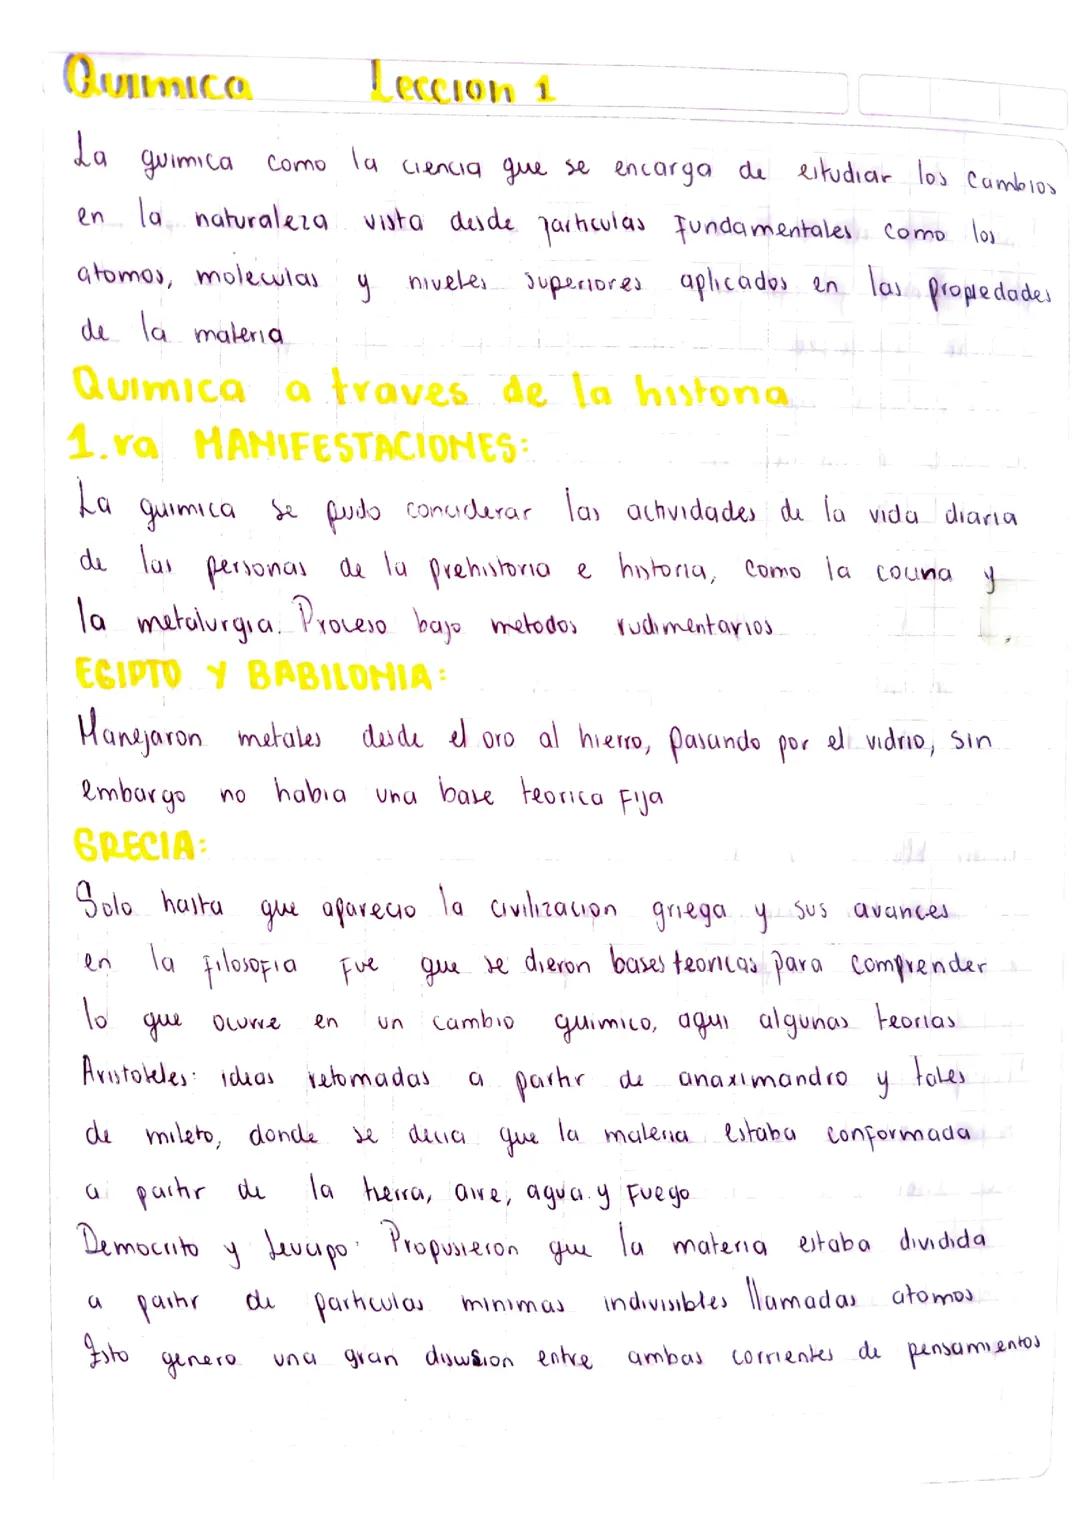 Quimica Leccion 1
La quimica como la ciencia que se encarga de estudiar los cambios
en la naturaleza vista desde particulas fundamentales como los
atomos, moleculas y niveles superiores aplicados en las propiedades
de la materia
Quimica a traves de la historia
1.ra MANIFESTACIONES:
La quimica se pudo considerar las actividades de la vida diaria
de las personas de la prehistoria e historia, como la cocina y
la metalurgia. Proceso bajo metodos rudimentarios
EGIPTO Y BABILONIA:
Manejaron metales desde el oro al hierro, pasando por el vidrio, sin
embargo no habia una base teorica fija
GRECIA:
Solo hasta que aparecio la civilizacion griega y sus avances
en la filosofia fue que se dieron bases teoricas para comprender
lo que ocurre en un cambio quimico, aqui algunas teorias
Aristoteles: ideas retomadas a partir de anaximandro y tales
de mileto, donde se decia que la materia estaba conformada
a partir de la tierra, aire, agua y fuego
Democrito y Leucipo: Propusieron que la materia estaba dividida
a partir de particulas minimas indivisibles llamadas atomos
Esto genero una gran discusion entre ambas corrientes de pensamientos